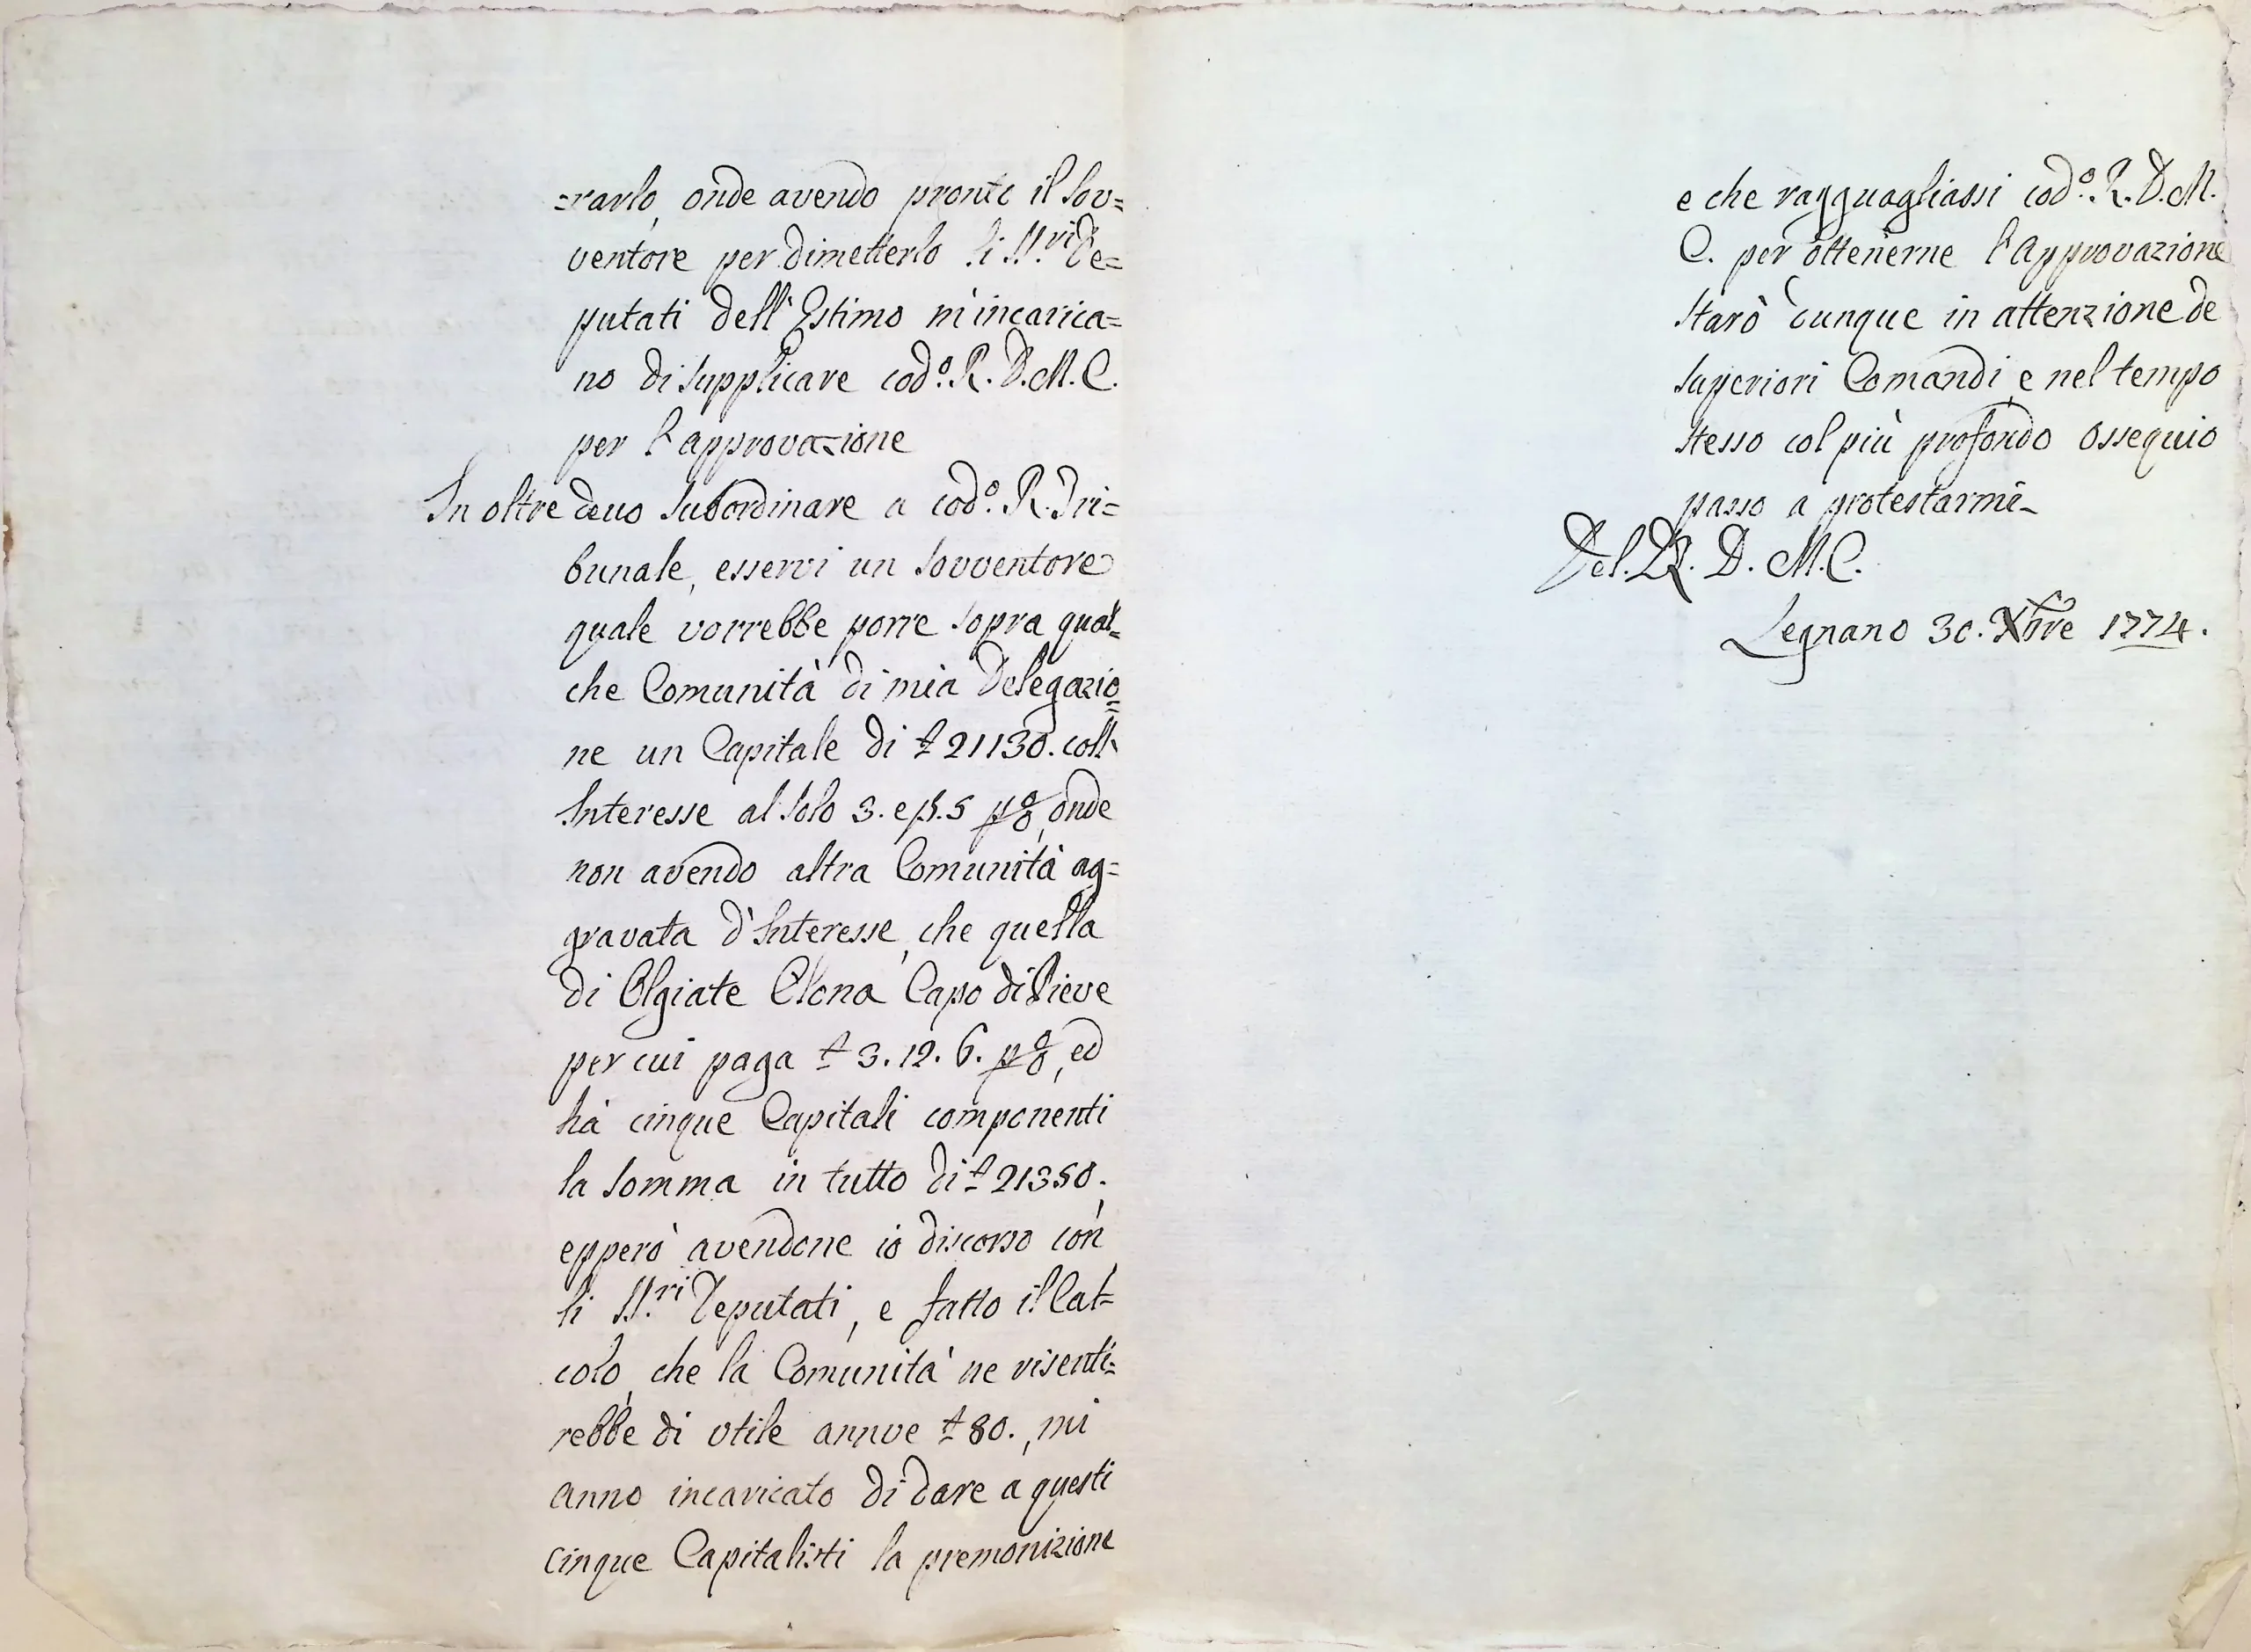 =rarlo, onde avendo pronto il Sov=
ventore per dimetterlo li SS.ri De=
putati dell' Estimo m'incarica=
no di Supplicare cod.o R. D. M. C.
per l'approvazione
In oltre devo Subordinare a cod.o R. Tri=
bunale, esservi un Sovventore
quale vorrebbe porre Sopra qual=
che Comunità di mia Delegazio=
ne un Capitale di £ 21130. coll'
Interesse al Solo 3. e ß. 5 p%, onde
non avendo altra Comunità ag=
gravata d'Interesse, che quella
di Olgiate Olona Capo di Pieve
per cui paga £ 3. 12. 6. p%, ed
hà cinque Capitali componenti
la Somma in tutto di £ 21350.
epperò avendone io discorso con
li SS.ri Deputati, e fatto il Cal=
colo, che la Comunità ne risenti=
rebbe di utile annue £ 80., mi
anno incaricato di dare a questi
cinque Capitalisti la premonizione
e che ragguagliassi cod.o R. D. M.
C. per ottenerne l'approvazione
Starò dunque in attenzione de
Superiori Comandi, e nel tempo
Stesso col più profondo Ossequio
passo a protestarmi
Del. R. D. M. C.
Legnano 30. Xbre 1774.